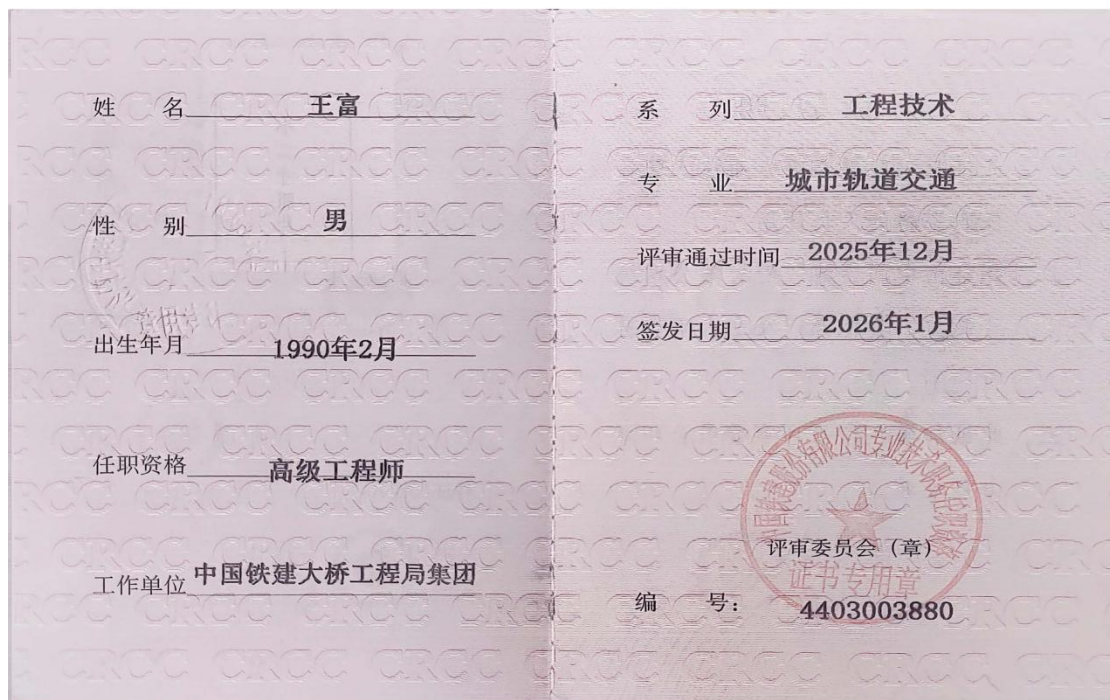 姓 名 王富
性 别 男
出生年月 1990年2月
任职资格 高级工程师
工作单位 中国铁建大桥工程局集团
系 列 工程技术
专 业 城市轨道交通
评审通过时间 2025年12月
签发日期 2026年1月
中国铁建股份有限公司专业技术职务任职资格
评审委员会（章）
证书专用章
编 号： 4403003880
CRCC